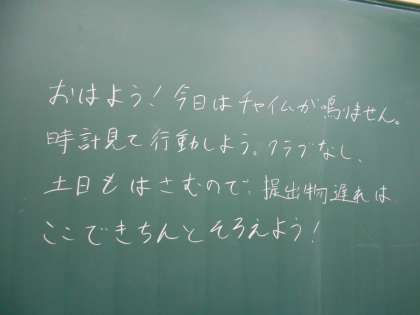 おはよう！今日はチャイムが鳴りません。
時計見て行動しよう。クラブなし、
土日もはさむので、提出物遅れは
ここできちんとそろえよう！